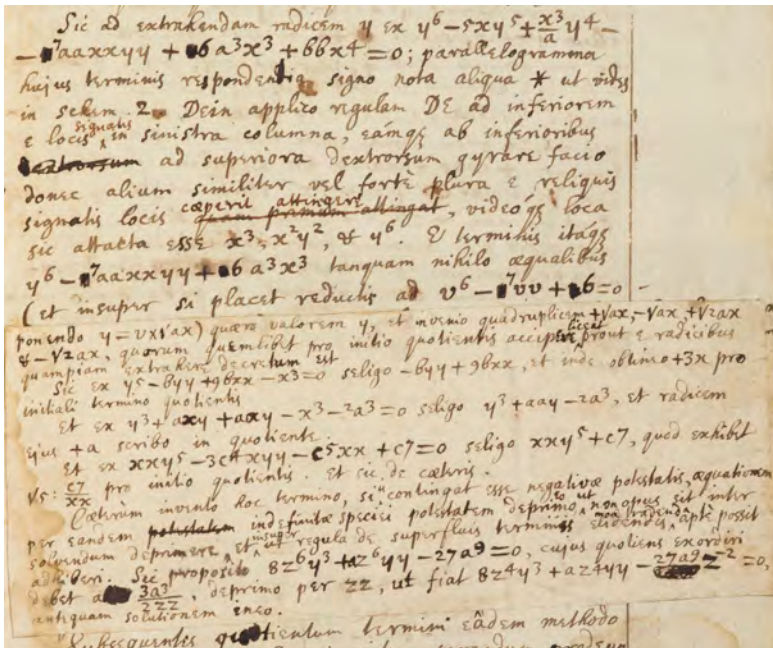 Sic ad extrahendam radicem y ex y⁶ − 5xy⁵ + x³/a y⁴ −
− 7aaxxyy + 6a³x³ + bbx⁴ = 0; parallelogramma
hujus terminis respondentia signo nota aliqua * ut vides
in schem. 2. Dein applico regulam DE ad inferiorem
e locis signatis in sinistra columna, eámqꝫ ab inferioribus
ad superiora dextrorsum gyrare facio
donec alium similiter vel fortè plura e reliquis
signatis locis cæperit attingere, videóqꝫ loca
sic attacta esse x³, x²y², & y⁶. E terminis itaqꝫ
y⁶ − 7aaxxyy + 6a³x³ tanquam nihilo æqualibus
(et insuper si placet reductis ad v⁶ − 7vv + 6 = 0
ponendo y = v×√ax) quæro valorem y, et invenio quadruplicem +√ax, −√ax, +√2ax
& −√2ax, quorum quemlibet pro initio quotientis accipere liceat prout e radicibus
quampiam extrahere decretum est
Sic ex y⁵ − byy + 9bxx − x³ = 0 seligo −byy + 9bxx, et inde obtineo +3x pro
initiali termino quotientis
Et ex y³ + axy + aay − x³ − 2a³ = 0 seligo y³ + aay − 2a³, et radicem
ejus +a scribo in quotiente.
Et ex xxy⁵ − 3c⁴xyy − c⁵xx + c7 = 0 seligo xxy⁵ + c7, quod exhibet
√5: c7/xx pro initio quotientis. Et sic de cæteris.
Cæterum invento hoc termino, si contingat esse negativæ potestatis, æquationem
per eandem indefinitæ speciei potestatem deprimo eo ut non opus sit inter
solvendum deprimere, et insuper ut regula de superfluis terminis mox tradenda elidendis, aptè possit
adhiberi. Sic proposito 8z⁶y³ + az⁶yy − 27a9 = 0, cujus quotiens exordiri
debet a 3a³/2zz, deprimo per zz, ut fiat 8z⁴y³ + az4yy − 27a9 z⁻² = 0,
antequam solutionem ineo.
Subsequentes quotientum termini eâdem methodo